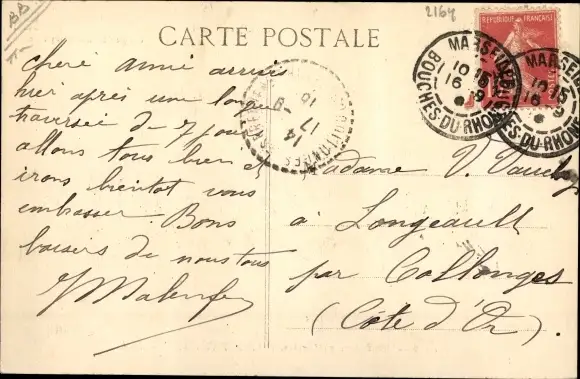 2164
CARTE POSTALE
RÉPUBLIQUE FRANÇAISE
MARSEILLE
10 15
16 - 9
BOUCHES-DU-RHONE
MARSEILLE
10 15
16 - 9
BOUCHES-DU-RHONE
chère amie arrivés
hier après une longue
traversée de 7 jours
allons tous bien et
irons bientôt vous
embrasser. Bons
baisers de nous tous
Madame V.
à Longeault
par Collonges
(Côte d'Or).